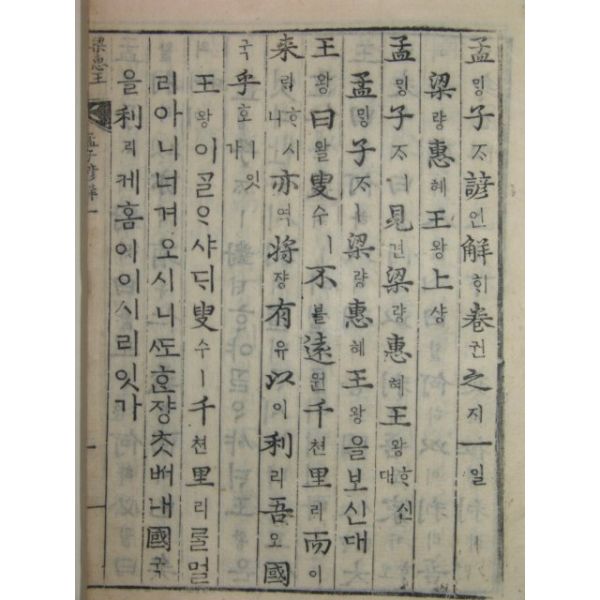 孟밍子ᄌᆞ諺언解ᄒᆡ卷권之지一일
梁량惠혜王왕上샹
孟밍子ᄌᆞㅣ見견梁량惠혜王왕ᄒᆞ신대
孟밍子ᄌᆞㅣ梁량惠혜王왕을보신대
王왕曰왈叟수ㅣ不블遠원千쳔里리而이
來ᄅᆡᄒᆞ시니亦역將쟝有유以이利리吾오國
국乎호ㅣ잇가
王왕이ᄀᆞᆯᄋᆞ샤ᄃᆡ叟수ㅣ千쳔里리ᄅᆞᆯ멀
리아니너겨오시니ᄯᅩᄒᆞᆫ쟝ᄎᆞᆺᄡᅥ내國국
을利리케홈이이시리잇가
梁惠王
孟子諺解一